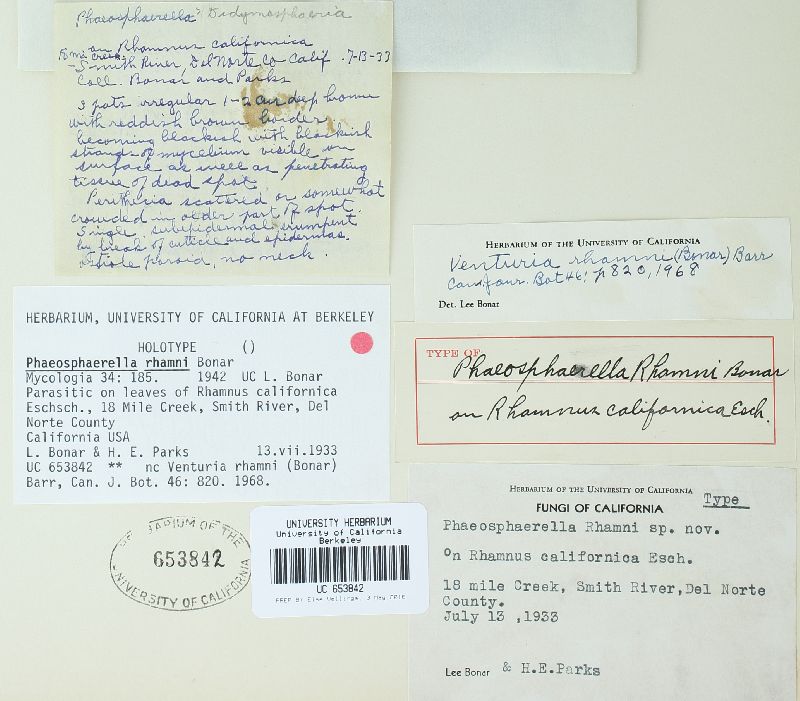 Phaeosphaerella? Didymosphaeria
on Rhamnus californica
18 mi Creek
- Smith River, Del Norte Co Calif. 7-13-33
Coll. Bonar and Parks
Spots irregular 1-2 cm deep brown
with reddish brown border
becoming blackish with blackish
strands of mycelium visible on
surface as well as penetrating
tissue of dead spot.
Perithecia scattered or somewhat
crowded in older part of spot.
Single, subepidermal erumpent
by break of cuticle and epidermis.
Ostiole poroid, no neck.
HERBARIUM, UNIVERSITY OF CALIFORNIA AT BERKELEY
HOLOTYPE ()
Phaeosphaerella rhamni Bonar
Mycologia 34: 185. 1942 UC L. Bonar
Parasitic on leaves of Rhamnus californica
Eschsch., 18 Mile Creek, Smith River, Del
Norte County
California USA
L. Bonar & H. E. Parks 13.vii.1933
UC 653842 ** nc Venturia rhamni (Bonar)
Barr, Can. J. Bot. 46: 820. 1968.
HERBARIUM OF THE
653842
UNIVERSITY OF CALIFORNIA
UNIVERSITY HERBARIUM
University of California
Berkeley
UC 653842
PREP BY Else Vellinga, 3 May
HERBARIUM OF THE UNIVERSITY OF CALIFORNIA
Venturia rhamni (Bonar) Barr
Can. Jour. Bot 46: p 820, 1968
Det. Lee Bonar
TYPE OF
Phaeosphaerella Rhamni Bonar
on Rhamnus californica Esch.
HERBARIUM OF THE UNIVERSITY OF CALIFORNIA Type
FUNGI OF CALIFORNIA
Phaeosphaerella Rhamni sp. nov.
On Rhamnus californica Esch.
18 mile Creek, Smith River, Del Norte
County.
July 13 ,1933
Lee Bonar & H.E.Parks